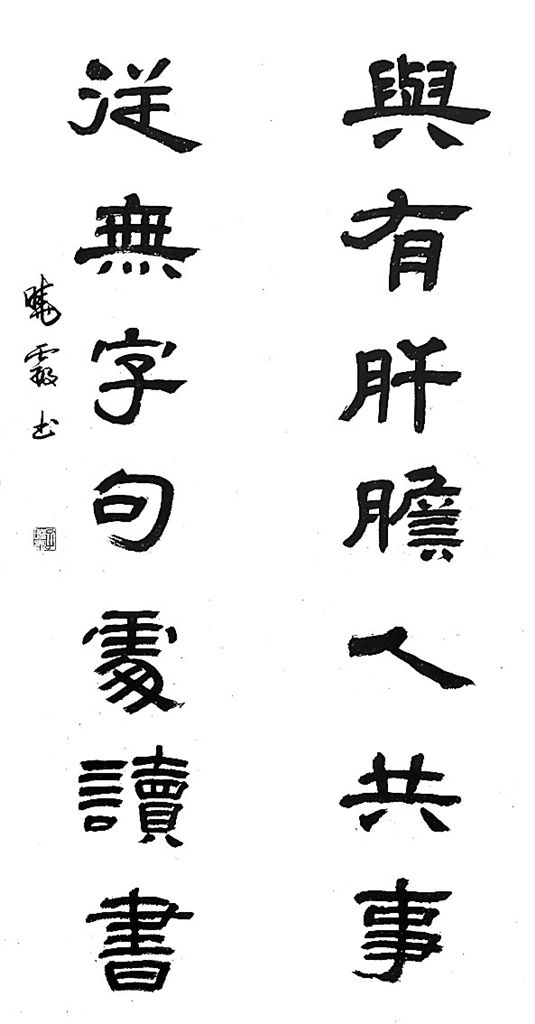 與有肝膽人共事
從無字句處讀書
曉霞书